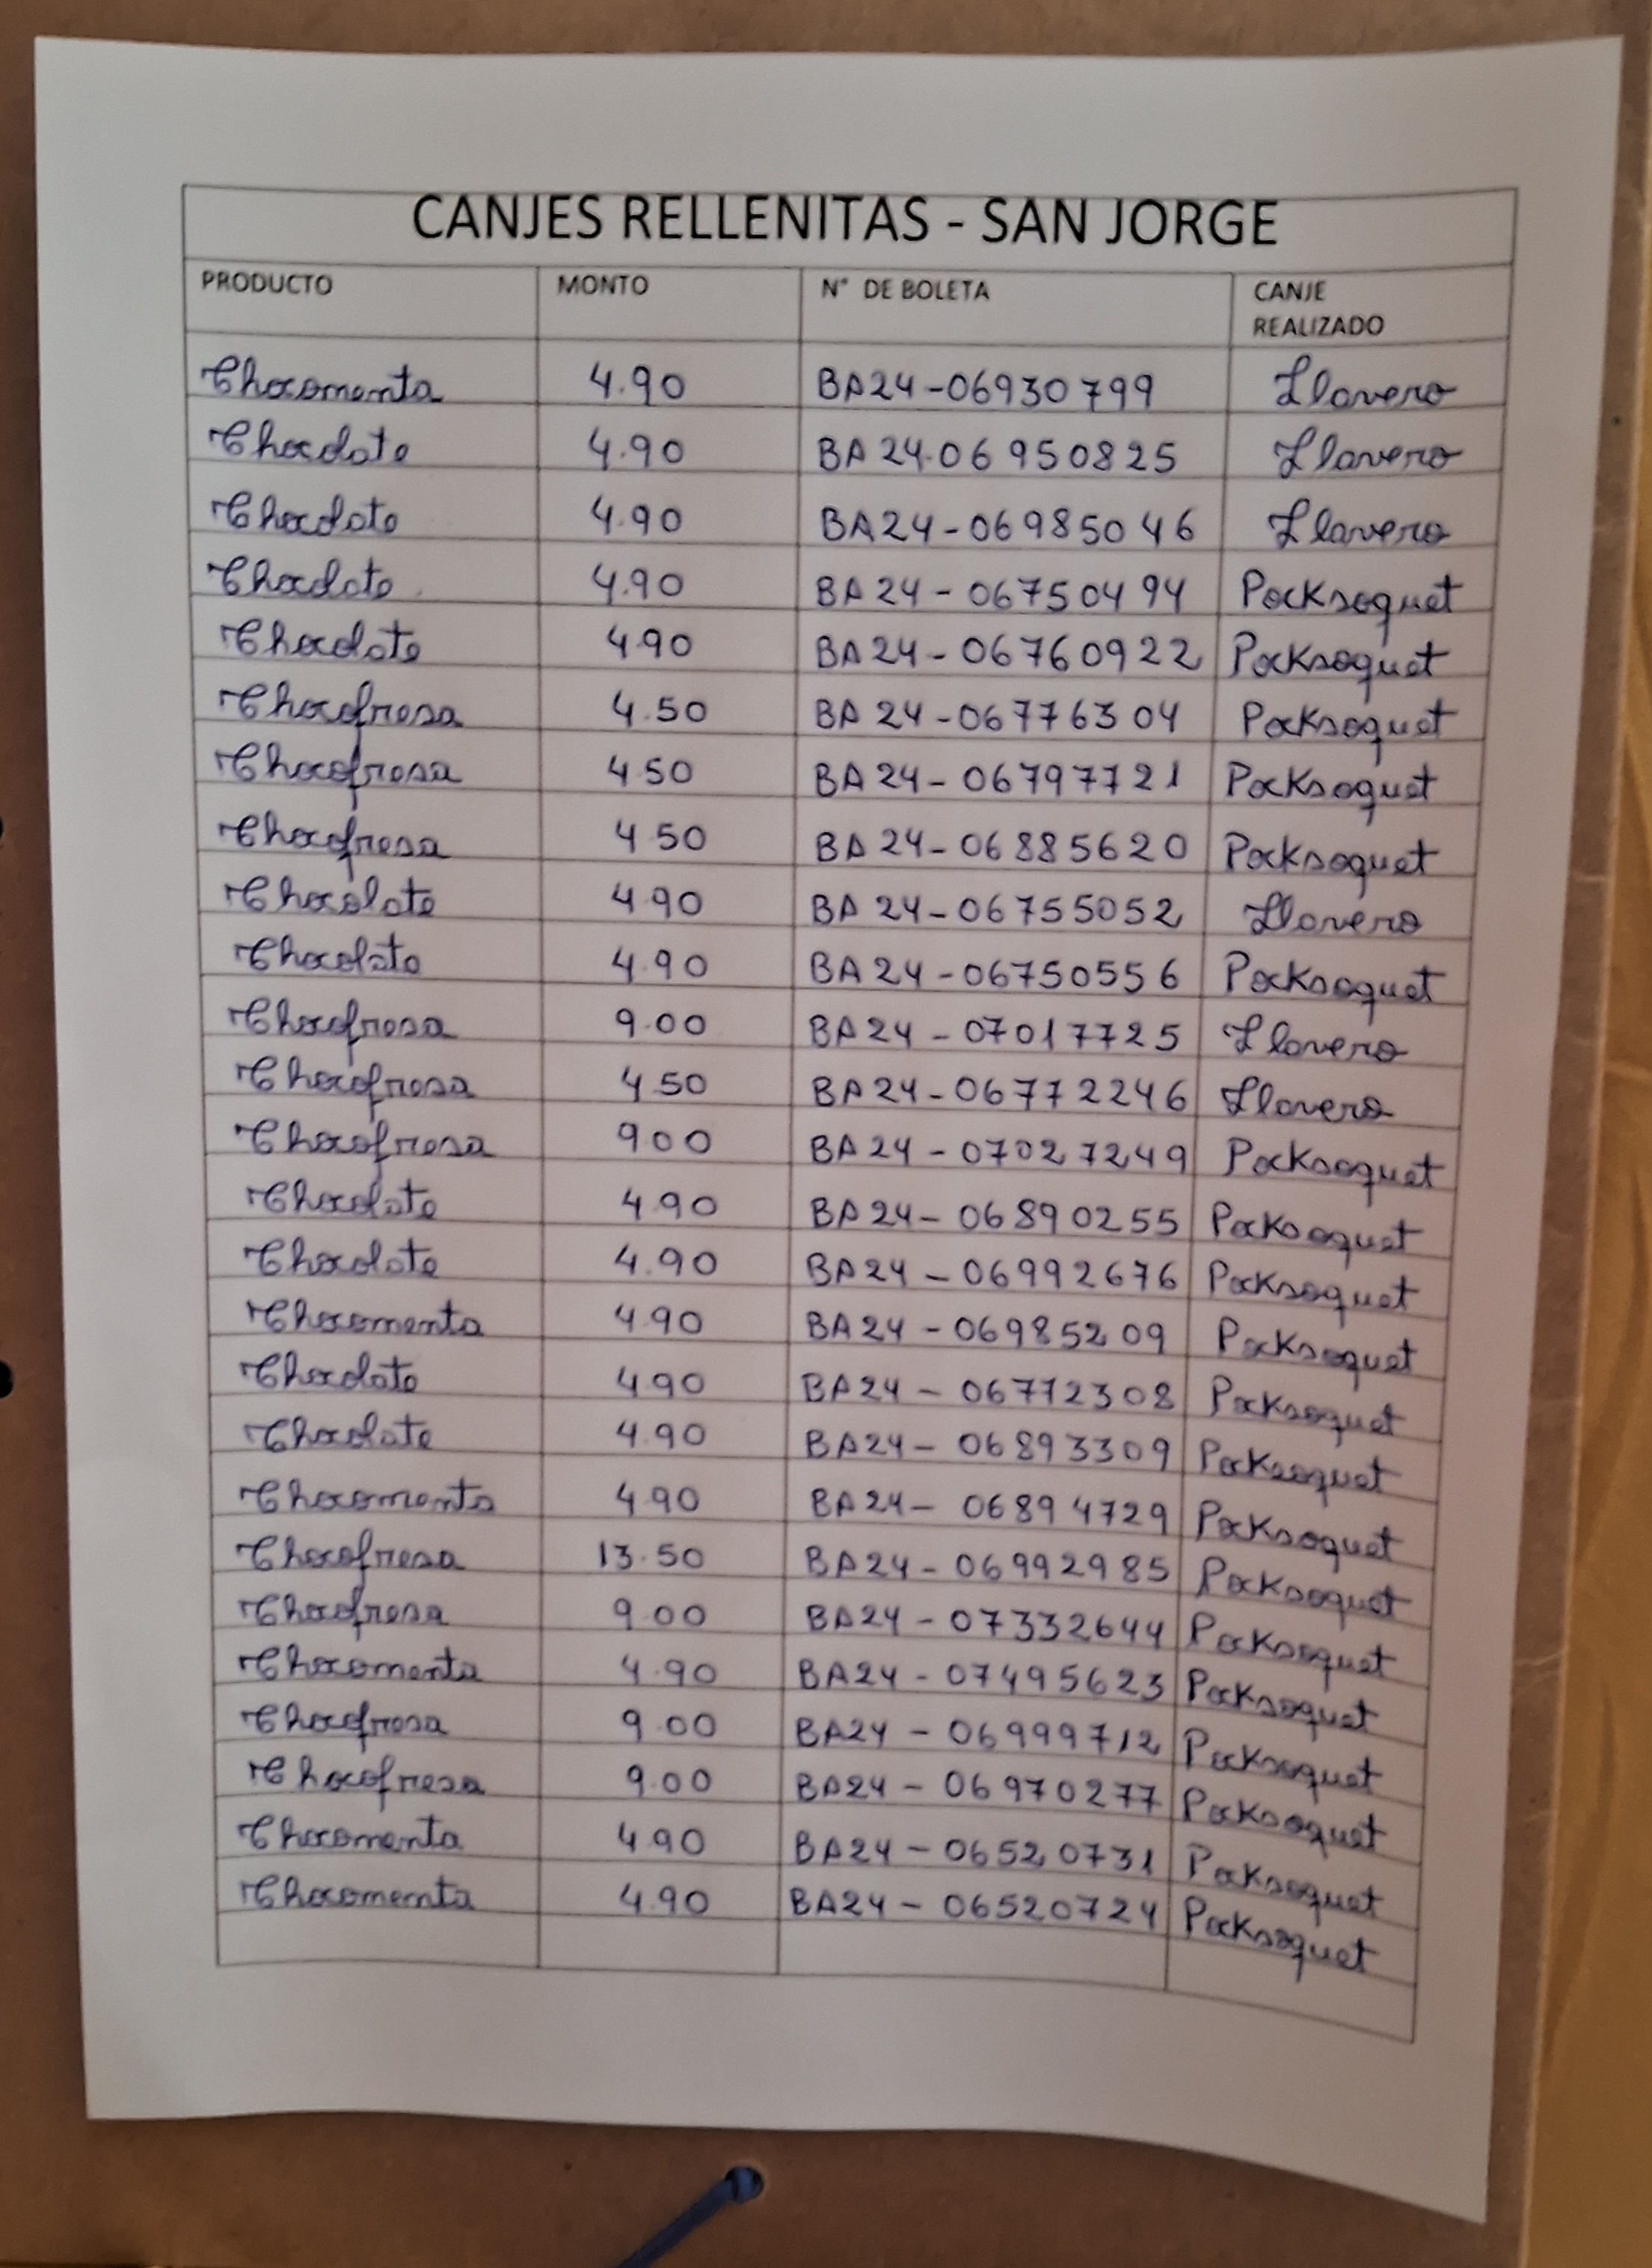 CANJES RELLENITAS - SAN JORGE
PRODUCTO MONTO N° DE BOLETA CANJE REALIZADO
Chocomenta 4.90 BA24-06930799 Llavero
Chocolate 4.90 BA24-06950825 Llavero
Chocolate 4.90 BA24-06985046 Llavero
Chocolate 4.90 BA24-06750494 Pocksoquet
Chocolate 4.90 BA24-06760922 Pocksoquet
Chocofresa 4.50 BA24-06776304 Pocksoquet
Chocofresa 4.50 BA24-06797721 Pocksoquet
Chocofresa 4.50 BA24-06885620 Pocksoquet
Chocolate 4.90 BA24-06755052 Llavero
Chocolate 4.90 BA24-06750556 Pocksoquet
Chocofresa 9.00 BA24-07017725 Llavero
Chocofresa 4.50 BA24-06772246 Llavero
Chocofresa 9.00 BA24-07027249 Pocksoquet
Chocolate 4.90 BA24-06890255 Pocksoquet
Chocolate 4.90 BA24-06992676 Pocksoquet
Chocomenta 4.90 BA24-06985209 Pocksoquet
Chocolate 4.90 BA24-06772308 Pocksoquet
Chocolate 4.90 BA24-06893309 Pocksoquet
Chocomenta 4.90 BA24-06894729 Pocksoquet
Chocofresa 13.50 BA24-06992985 Pocksoquet
Chocofresa 9.00 BA24-07332644 Pocksoquet
Chocomenta 4.90 BA24-07495623 Pocksoquet
Chocofresa 9.00 BA24-06999712 Pocksoquet
Chocofresa 9.00 BA24-06970277 Pocksoquet
Chocomenta 4.90 BA24-06520731 Pocksoquet
Chocomenta 4.90 BA24-06520724 Pocksoquet